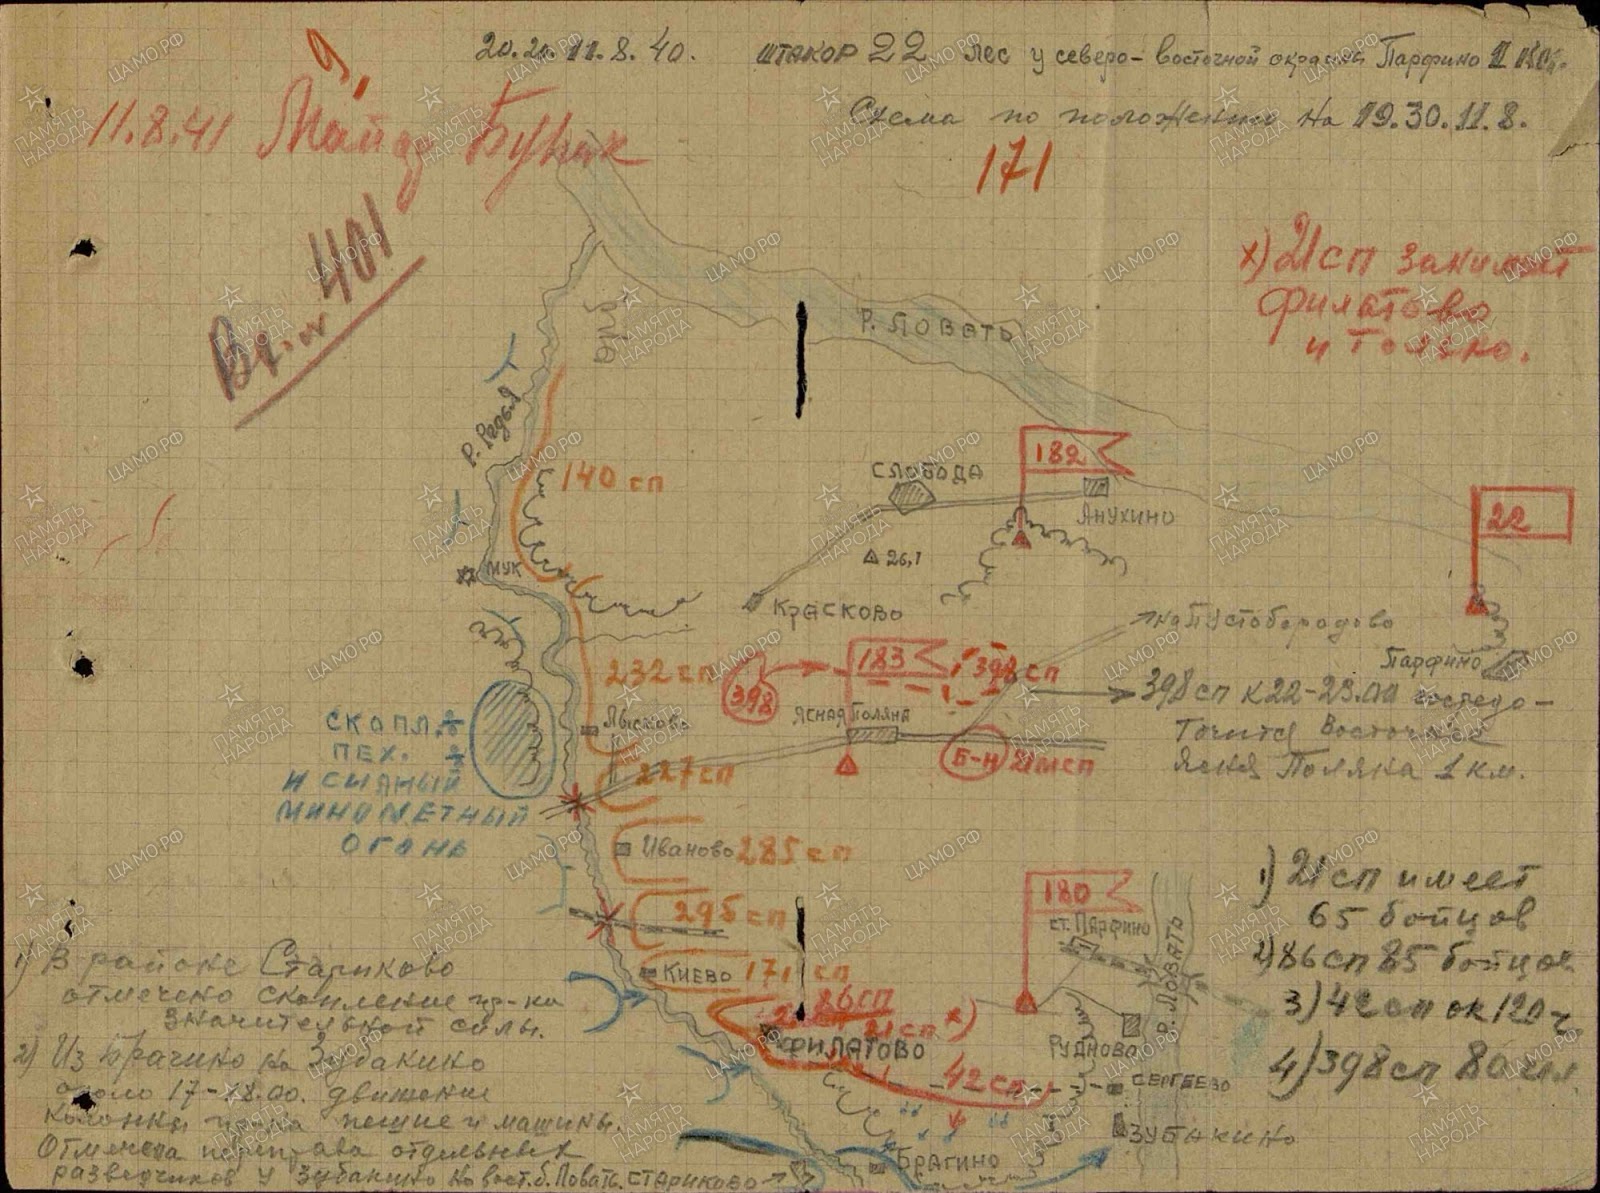 20.20. 11.8.40. штакор 22 лес у северо-восточной окраины Парфино
Схема по положению на 19.30. 11.8.
9.
11.8.41
171
401
х) 21 сп
Филатово
и Толяно.
р. Ловать
р. Редья
140 сп
Слобода
182
Янухино
22
26,1
МУК
Красково
на Пустобородово
Парфино
232 сп
398
183
398 сп
Ясная Поляна
398 сп к 22-23.00
Восточнее
Ясная Поляна 1 км.
Б-н 21 мсп
скопл.
пех.
и сильный
минометный
огонь
227 сп
Иваново 285 сп
295 сп
180
ст. Парфино
р. Ловать
Киево 171 сп
26 сп
21 сп х)
Филатово
42 сп
Рудново
Сергеево
Зубакино
Брагино
1) 21 сп имеет
65 бойцов
2) 86 сп 85 бойцов
3) 42 сп ок 120 ч.
4) 398 сп 80 чел
1) В районе Стариково
отмечено скопление пр-ка
значительной силы.
2) Из Брагино на Зубакино
около 17-18.00. движение
колонны пр-ка пешие и машины.
Отмечена переправа отдельных
разведчиков у Зубакино на вост. б. Ловать. Стариково
ЦАМО.РФ
ПАМЯТЬ
НАРОДА